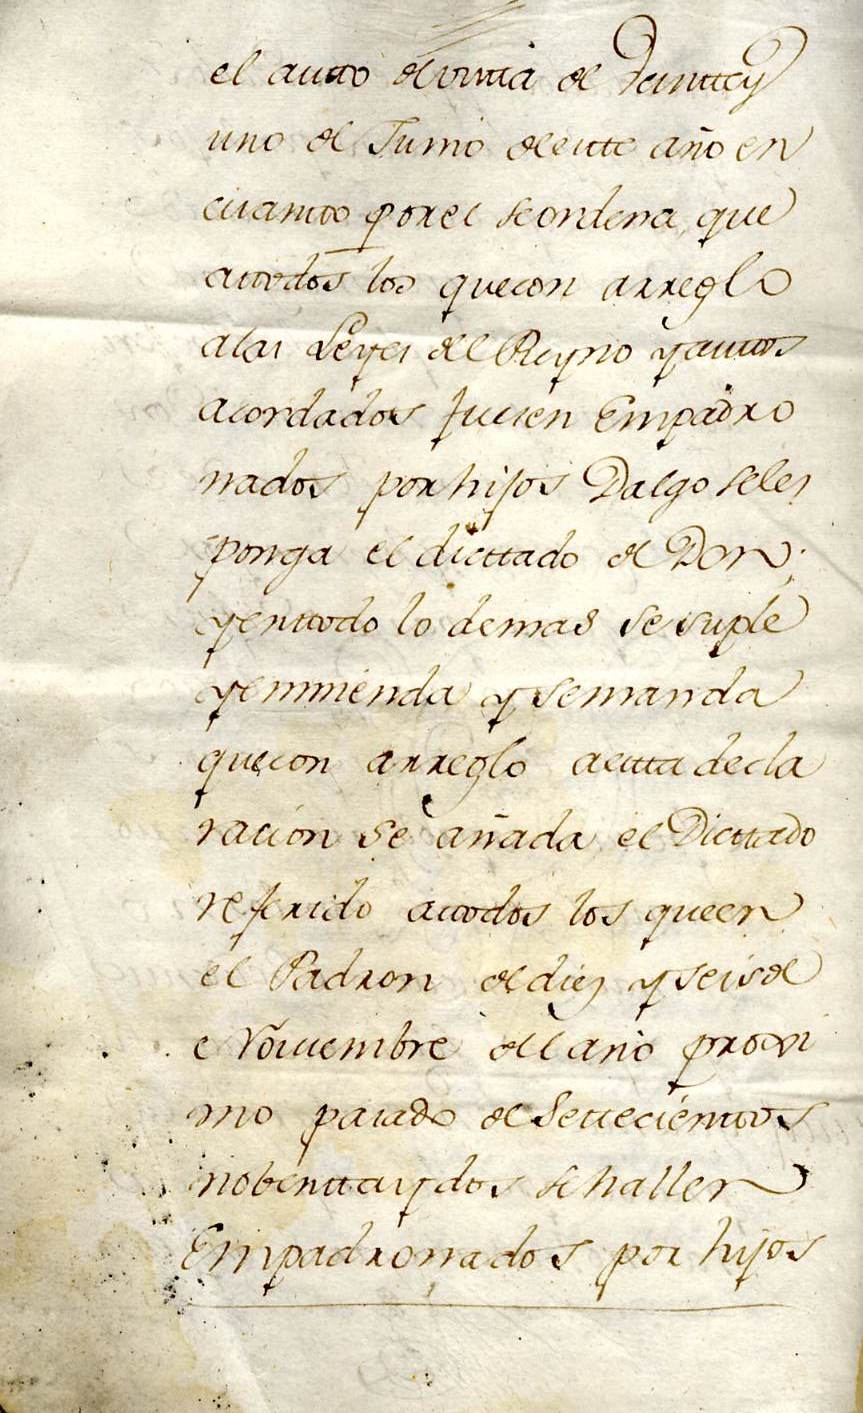 el autto de vista de Veinttey
uno de Junio de este año en
cuantto por el se ordena, que
a ttodos los que con arreglo
a las Leyes del Reyno y auttos
acordados fuesen Empadro
nados por hijos Dalgo se les
ponga el dicttado de Don;
y en ttodo lo demas se suple
y enmienda y se manda
que con arreglo a estta decla
racion se añada el Dicttado
referido a ttodos los que en
el Padron de diez y seis de
e Noviembre del año proxi
mo pasado de Settecienttos
nobentta y dos se hallen
Empadronados por hijos